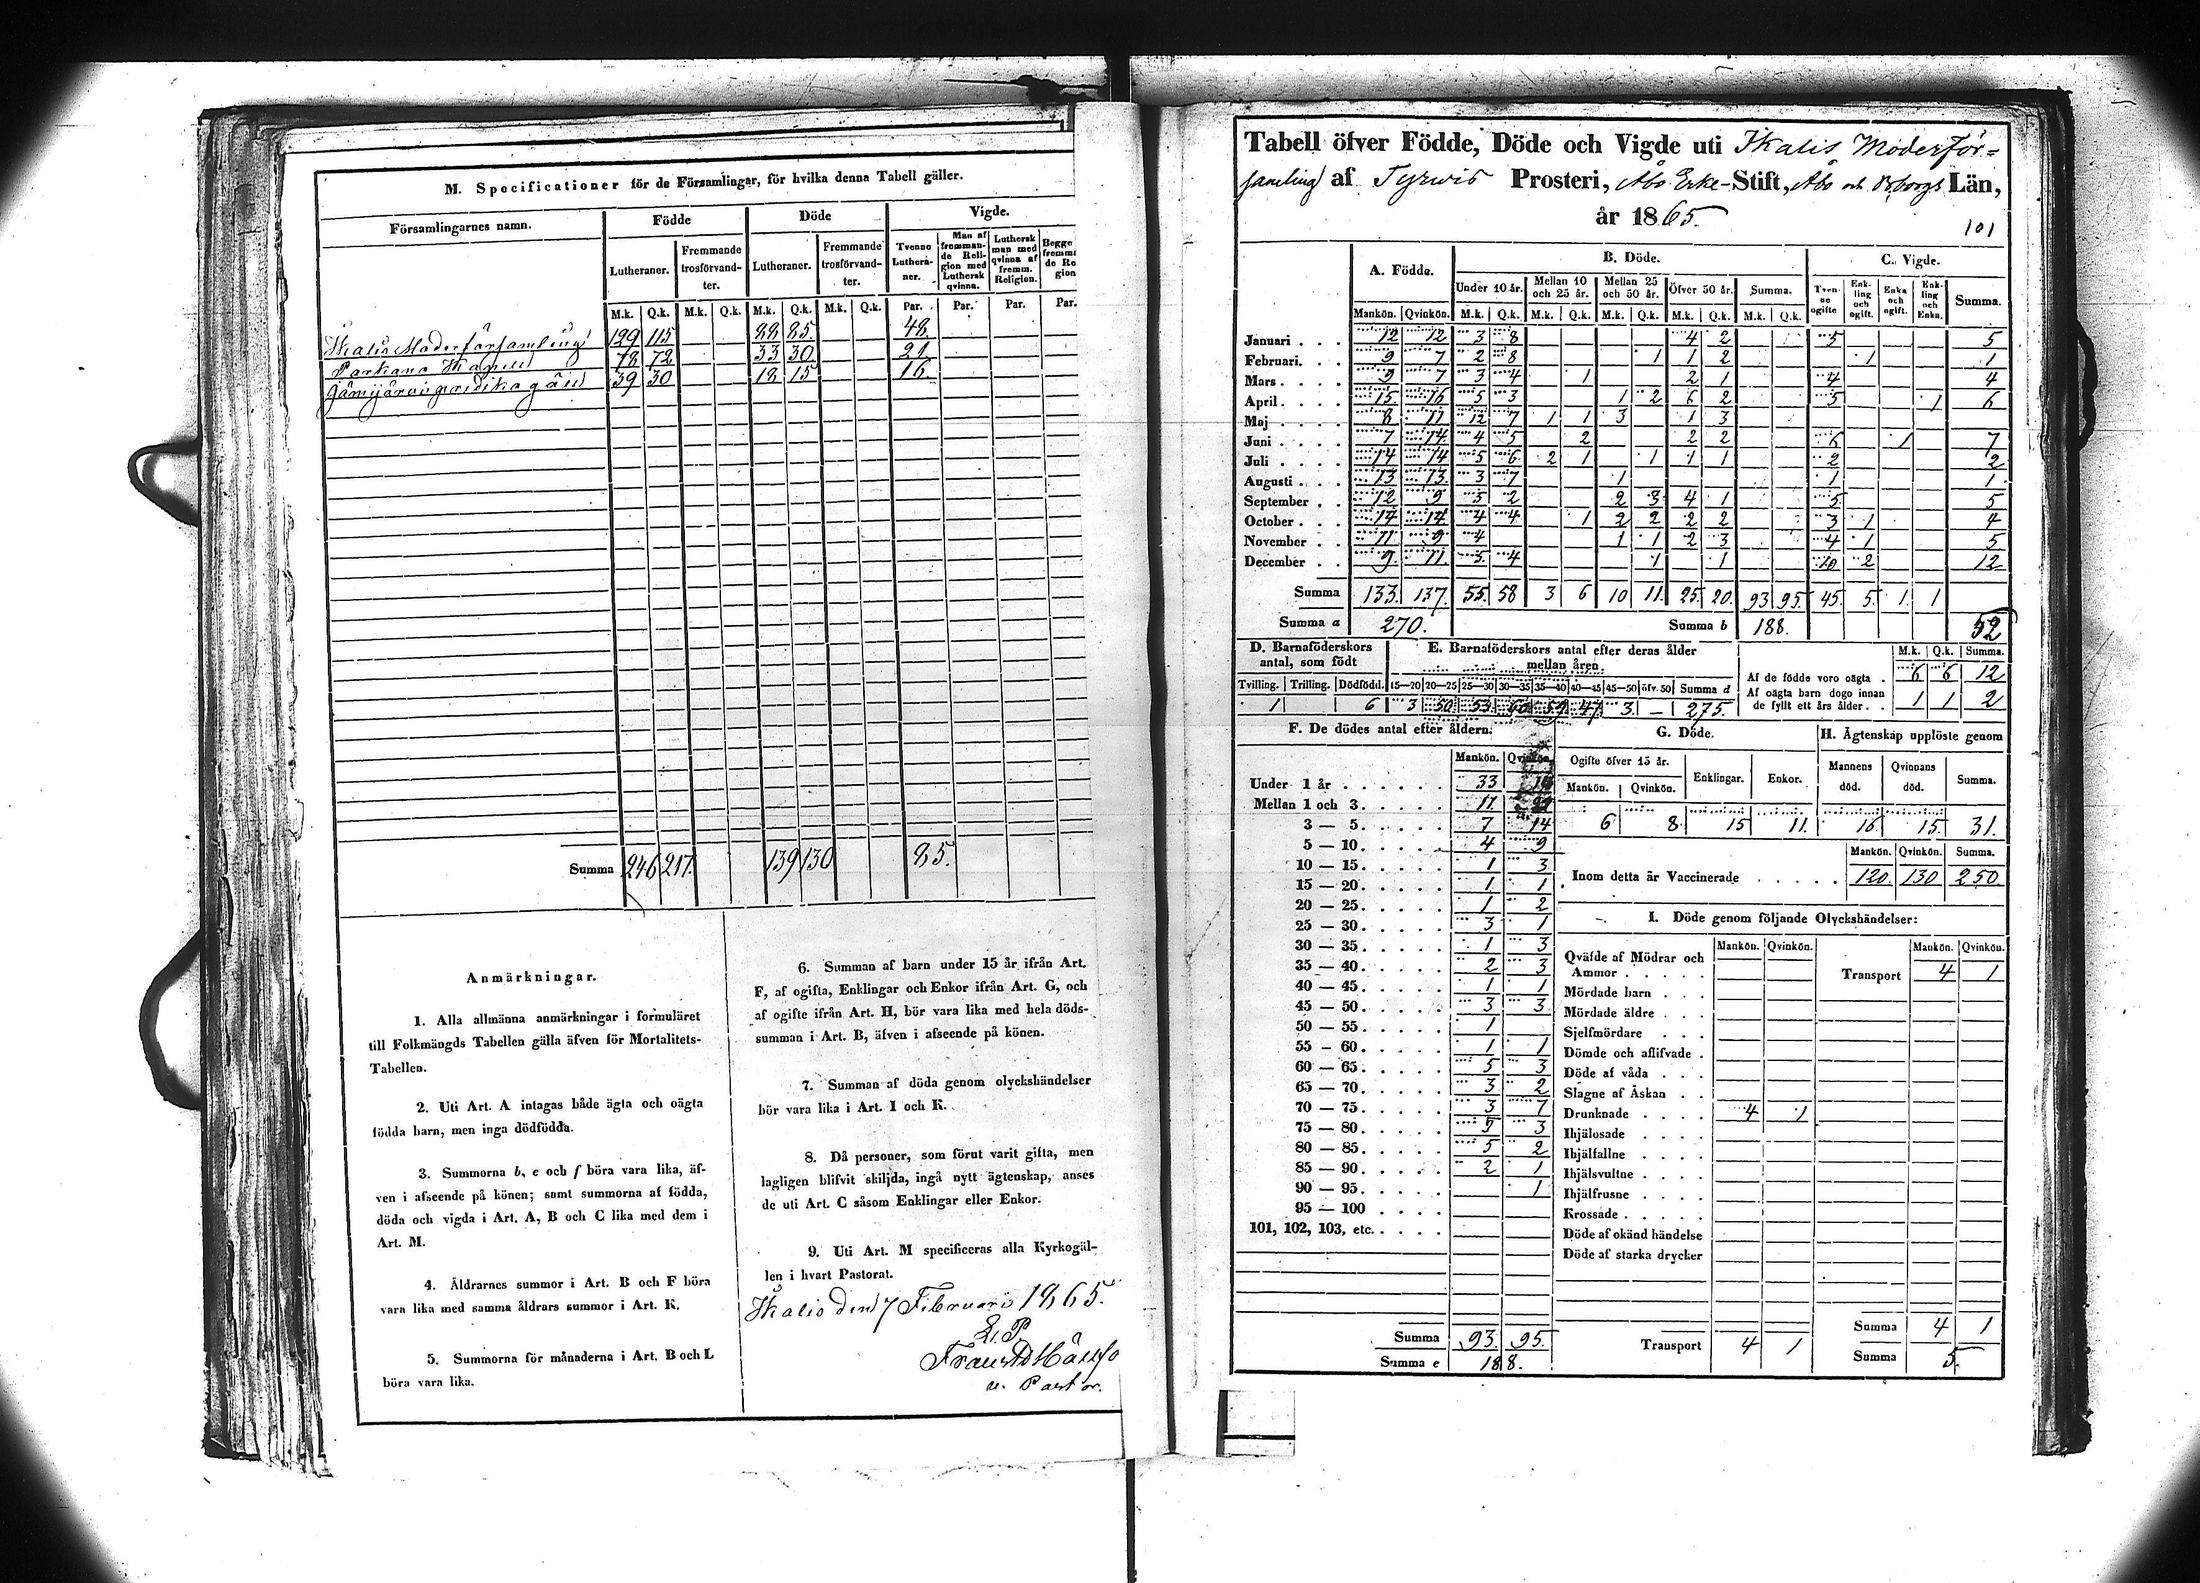 M. Specificationer för de Församlingar, för hvilka denna Tabell gäller.
Församlingarnes namn. Födde Döde Vigde.
Lutheraner. Fremmande trosförvandter. Lutheraner. Fremmande trosförvandter. Tvenne Lutheraner. Man af fremmande Religion med Luthersk qvinna. Luthersk man med qvinna af fremm. Religion. Begge
M.k. Q.k. M.k. Q.k. M.k. Q.k. M.k. Q.k. Par. Par. Par. Par.
Ikalis Moderförsamling 129 115 88 85 48
Parkano Kapell 78 72 33 30 21
Jämijärvi 39 30 18 15 16
Summa 246 217 139 130 85.
Anmärkningar.
1. Alla allmänna anmärkningar i formuläret
till Folkmängds Tabellen gälla äfven för Mortalitets-
Tabellen.
2. Uti Art. A intagas både ägta och oägta
födda barn, men inga dödfödda.
3. Summorna b, e och f böra vara lika, äf-
ven i afseende på könen; samt summorna af födda,
döda och vigda i Art. A, B och C lika med dem i
Art. M.
4. Åldrarnes summor i Art. B och F böra
vara lika med samma åldrars summor i Art. K.
5. Summorna för månaderna i Art. B och L
böra vara lika.
6. Summan af barn under 15 år ifrån Art.
F, af ogifta, Enklingar och Enkor ifrån Art. G, och
af ogifte ifrån Art. H, bör vara lika med hela döds-
summan i Art. B, äfven i afseende på könen.
7. Summan af döda genom olyckshändelser
bör vara lika i Art. I och K.
8. Då personer, som förut varit gifta, men
lagligen blifvit skiljda, ingå nytt ägtenskap, anses
de uti Art. C såsom Enklingar eller Enkor.
9. Uti Art. M specificeras alla Kyrkogäl-
len i hvart Pastorat.
Ikalis den 7 Februari 1865.
Frans
v. Pastor.
Tabell öfver Födde, Döde och Vigde uti Ikalis Moderför=
samling af Tyrwis Prosteri, Åbo Erke-Stift, Åbo och B:borgs Län,
år 1865.
101
A. Födde. B. Döde. C. Vigde.
Under 10 år. Mellan 10 och 25 år. Mellan 25 och 50 år. Öfver 50 år. Summa. Tvenne ogifte Enkling och ogift. Enka och ogift. Enkling och Enka. Summa.
Mankön. Qvinkön. M.k. Q.k. M.k. Q.k. M.k. Q.k. M.k. Q.k. M.k. Q.k.
Januari . . . 12 12 3 8 4 2 5 5
Februari. . . 9 7 2 8 1 1 2 1 1
Mars . . . . 9 7 3 4 1 2 1 4 4
April . . . . 15 16 5 3 1 2 6 2 5 1 6
Maj . . . . 8 11 12 7 1 1 3 1 3
Juni . . . . 7 14 4 5 2 2 2 6 1 7
Juli . . . . 14 14 5 6 2 1 1 1 1 2 2
Augusti . . . 13 13 3 7 1 1 1
September . . 12 9 5 2 2 3 4 1 5 5
October . . . 14 14 4 4 1 2 2 2 2 3 1 4
November . . 11 9 4 1 1 2 3 4 1 5
December . . 9 11 5 4 1 1 10 2 12
Summa 133. 137. 55. 58 3 6 10 11. 25. 20. 93 95. 45. 5. 1. 1
Summa a 270. Summa b 188. 52
D. Barnaföderskors antal, som födt
Tvilling. Trilling. Dödfödd.
1 6
E. Barnaföderskors antal efter deras ålder
mellan åren.
15—20 20—25 25—30 30—35 35—40 40—45 45—50 öfv. 50 Summa d
3 50 53 60 59 47 3 — 275.
M.k. Q.k. Summa.
Af de födde voro oägta . 6 6 12
Af oägta barn dogo innan
de fyllt ett års ålder . . 1 1 2
F. De dödes antal efter åldern.
Mankön. Qvinkön.
Under 1 år . . . . . . 33
Mellan 1 och 3 . . . . . 11
3 — 5 . . . . . 7 14
5 — 10 . . . . . 4 9
10 — 15 . . . . . 1 3
15 — 20 . . . . . 1 1
20 — 25 . . . . . 1 2
25 — 30 . . . . . 3 1
30 — 35 . . . . . 1 3
35 — 40 . . . . . 2 3
40 — 45 . . . . . 1 1
45 — 50 . . . . . 3 3
50 — 55 . . . . . 1
55 — 60 . . . . . 1 1
60 — 65 . . . . . 5 3
65 — 70 . . . . . 3 2
70 — 75 . . . . . 3 7
75 — 80 . . . . . 5 3
80 — 85 . . . . . 5 2
85 — 90 . . . . . 2 1
90 — 95 . . . . . 1
95 — 100 . . . . .
101, 102, 103, etc. . . . .
Summa 93. 95.
Summa e 188.
G. Döde.
Ogifte öfver 15 år. Enklingar. Enkor.
Mankön. Qvinkön.
6 8 15 11.
H. Ägtenskap upplöste genom
Mannens död. Qvinnans död. Summa.
16. 15. 31.
Mankön. Qvinkön. Summa.
Inom detta år Vaccinerade . . . . . 120. 130 250.
I. Döde genom följande Olyckshändelser:
Mankön. Qvinkön. Mankön. Qvinkön.
Qväfde af Mödrar och
Ammor . . . . . Transport 4 1
Mördade barn . . .
Mördade äldre . . .
Sjelfmördare . . .
Dömde och aflifvade .
Döde af våda . . .
Slagne af Åskan . .
Drunknade . . . . 4 1
Ihjälosade . . . .
Ihjälfallne . . . .
Ihjälsvultne . . . .
Ihjälfrusne . . . .
Krossade . . . . .
Döde af okänd händelse
Döde af starka drycker
Summa 4 1
Transport 4 1
Summa 5.